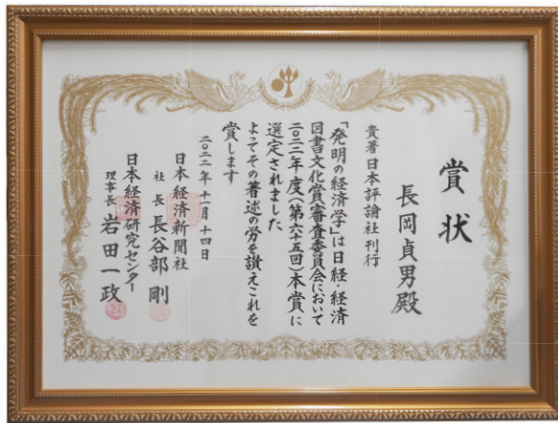 賞状
長岡貞男殿
貴著日本評論社刊行
「発明の経済学」は日経・経済
図書文化賞審査委員会において
二〇二二年度(第六十五回)本賞に
選定されました
よってその著述の労を讃えこれを
賞します
二〇二二年十一月十四日
日本経済新聞社
社長 長谷部 剛
日本経済研究センター
理事長 岩田一政